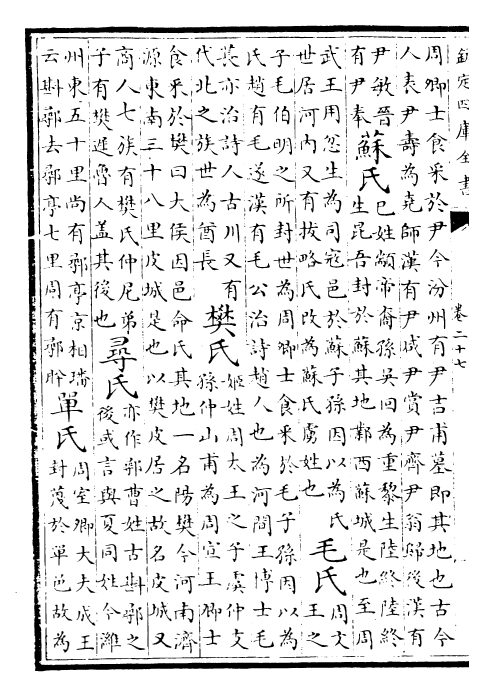 欽定四庫全書
卷二十七
周卿士食采於尹今汾州有尹吉甫墓即其地也古今
人表尹壽為堯師漢有尹咸尹賞尹齊尹翁歸後漢有
尹敏晉
有尹奉
蘇氏
己姓顓帝裔孫吳回為重黎生陸終陸終
生昆吾封於蘇其地鄴西蘇城是也至周
武王用忿生為司寇邑於蘇子孫因以為氏
世居河内又有拔略氏改為蘇氏虜姓也
毛氏
周文
王之
子毛伯明之所封世為周卿士食采於毛子孫因以為
氏趙有毛遂漢有毛公治詩趙人也為河間王博士毛
萇亦治詩人古川又有
代北之族世為酋長
樊氏
姬姓周太王之子虞仲支
孫仲山甫為周宣王卿士
食采於樊曰大侯因邑命氏其地一名陽樊今河南濟
源東南三十八里皮城是也以樊皮居之故名皮城又
商人七族有樊氏仲尼弟
子有樊遲魯人蓋其後也
尋氏
亦作鄩曹姓古斟鄩之
後或言與夏同姓今濰
州東五十里尚有鄩亭京相璠
云斟鄩去鄩亭七里周有鄩肸
單氏
周室卿大夫成王
封蔑於單邑故為